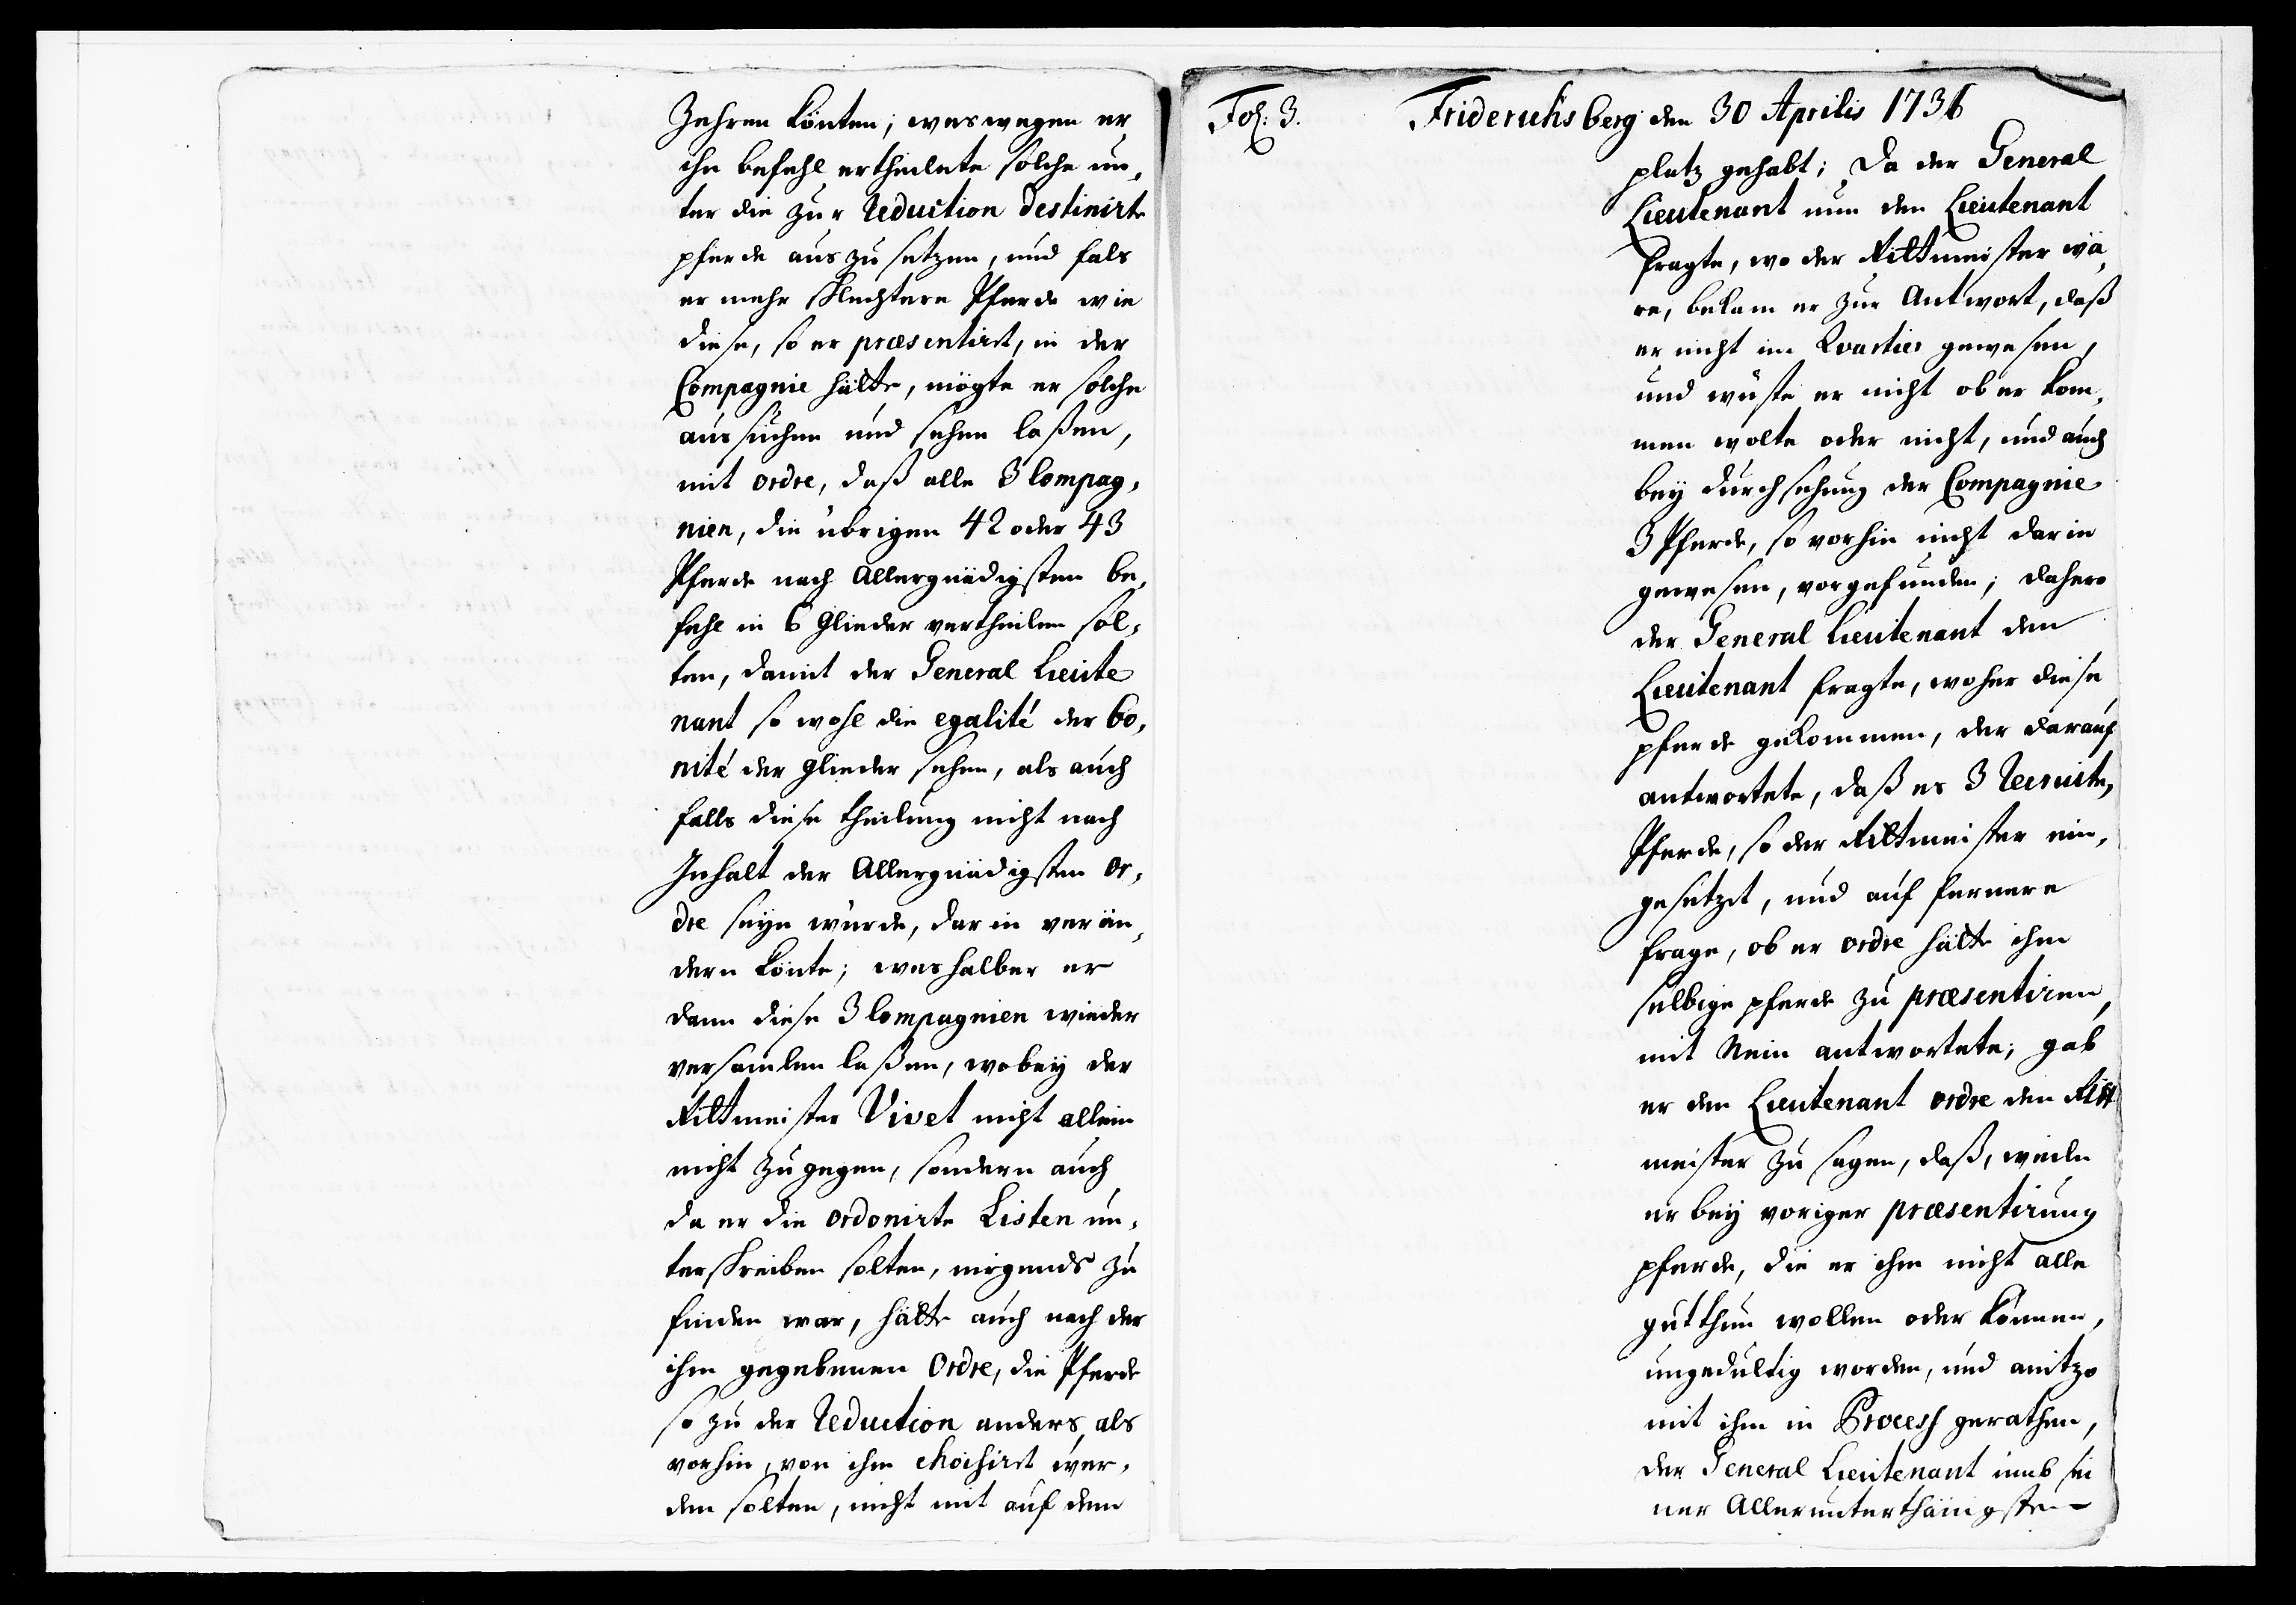 Zehren könten; weswegen er
ihn befehl ertheilete solche un,
ter die zur Reduction destinirte
pferde aus zu setzen, und fals
er mehr schlechtere Pferde wie
diese, so er præsentirt, in der
Compagnie hätte, mögte er solche
aussuchen und sehen laßen,
mit ordre, daß alle 3 Compag,
nien, die übrigen 42 oder 43
Pferde nach Allergnädigsten be,
fehl in 6 Glieder vertheilen sol,
ten, damit der General Lieute
nant so wohl die egalité der bo,
nité der Glieder sehen, als auch
falls diese theilung nicht nach
Inhalt der Allergnädigsten or,
dre seyn würde, darin verän,
dern könte; weshalber er
dann diese 3 Compagnien wieder
versamlen laßen, wobey der
Rittmeister Vivet nicht allein
nicht zugegen, sondern auch
da er die ordonirte Listen un,
terschreiben solten, nirgends zu
finden war, hätte auch nach der
ihm gegebenen Ordre, die Pferde
so zu der Reduction anders als
vorhin, von ihm choisirt wer,
den solten, nicht mit auf dem
Fol: 3. Friderichsberg den 30 Aprilis 1736
platz gehabt; Da der General
Lieutenant nun den Lieutenant
fragte, wo der Rittmeister wä,
re, bekam er zur Antwort, daß
er nicht im Qvartier gewesen,
und wuste er nicht ob er kom,
men wolte oder nicht, und auch
bey durchsehung der Compagnie
3 Pferde, so vorhin nicht darin
gewesen, vorgefunden; dahero
der General Lieutenant den
Lieutenant fragte, woher diese
pferde gekommen, der darauf
antwortete, daß es 3 Recruite,
Pferde, so der Rittmeister ein,
gesetzt, und auf fernere
frage, ob er ordre hätte ihm
selbige pferde zu præsentiren,
mit Nein antwortete; gab
er den Lieutenant ordre den Ritt
meister zu sagen, daß, weiln
er bey voriger præsentirung
pferde, die er ihm nicht alle
gut thun wollen oder können,
ungedultig worden, und anitzo
mit ihm in Process gerathen,
der General Lieutenant inmb sei
ner Allerunterthänigsten